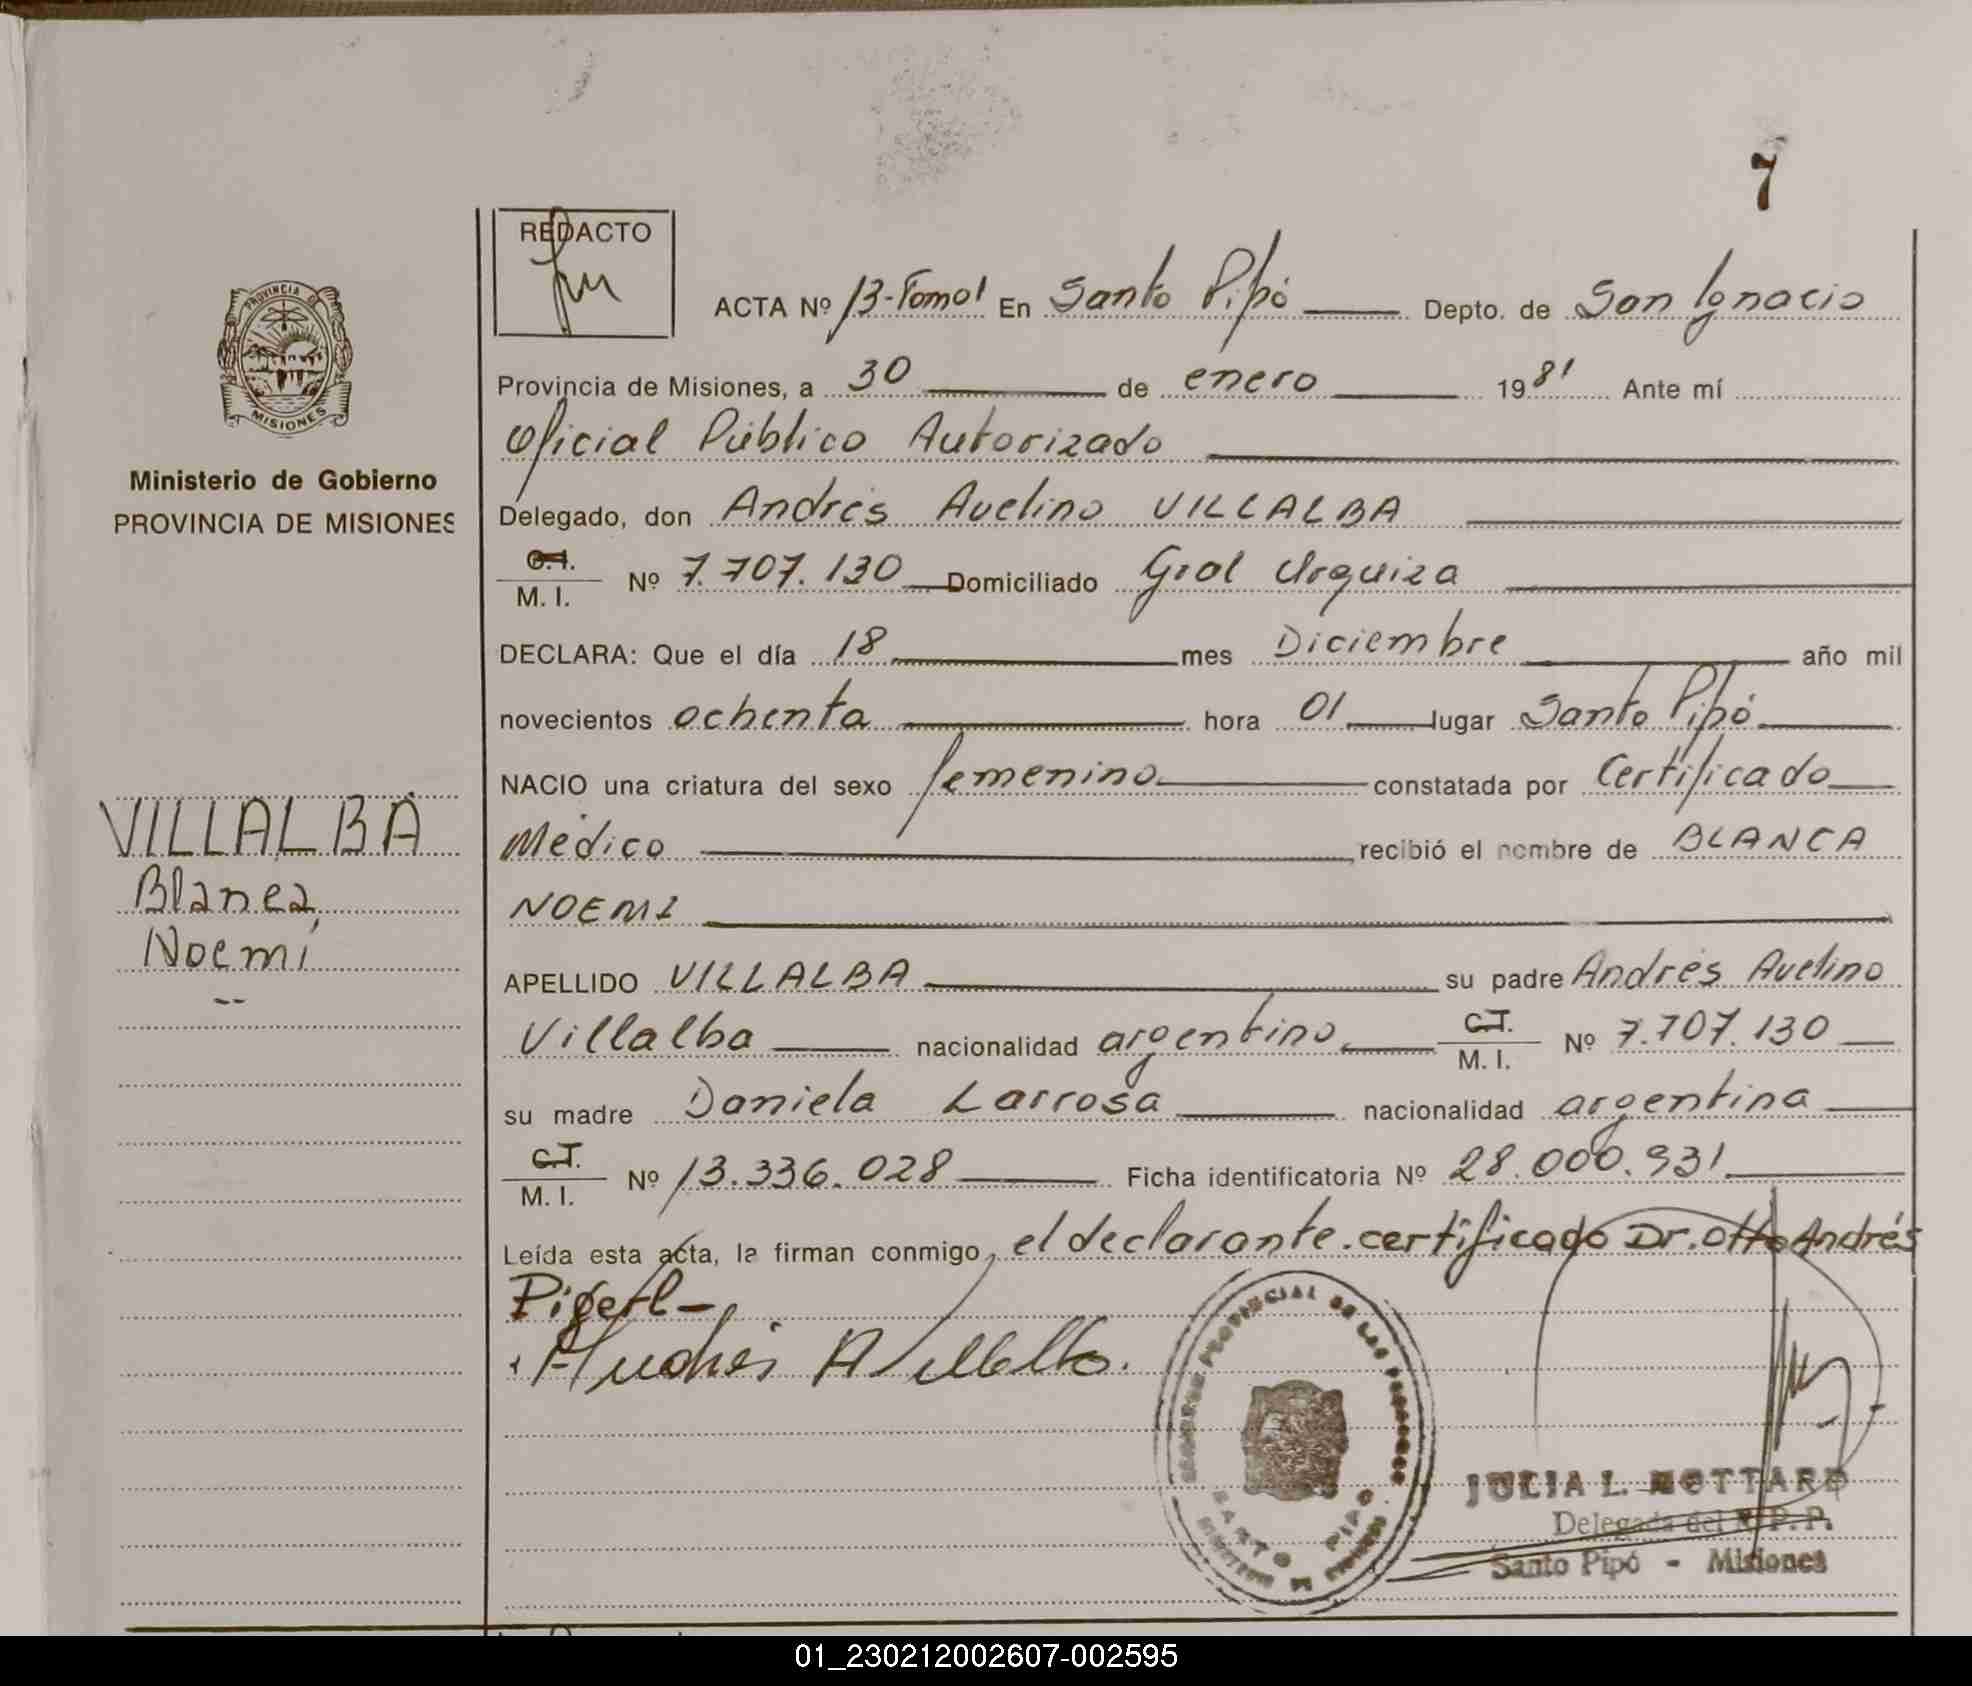 7
REDACTO
PROVINCIA DE
MISIONES
Ministerio de Gobierno
PROVINCIA DE MISIONES
VILLALBA
Blanca
Noemí
--
ACTA Nº 13-Tomo1 En Santo Pipó Depto. de San Ignacio
Provincia de Misiones, a 30 de enero 1981 Ante mí
Oficial Público Autorizado
Delegado, don Andrés Avelino VILLALBA
C.I. M. I. Nº 7.707.130 Domiciliado Gral Urquiza
DECLARA: Que el día 18 mes Diciembre año mil
novecientos ochenta hora 01 lugar Santo Pipó
NACIO una criatura del sexo femenino constatada por Certificado
Médico recibió el nombre de BLANCA
NOEMI
APELLIDO VILLALBA su padre Andrés Avelino
Villalba nacionalidad argentino C.I. M. I. Nº 7.707.130
su madre Daniela Larrosa nacionalidad argentina
C.I. M. I. Nº 13.336.028 Ficha identificatoria Nº 28.000.931
Leída esta acta, la firman conmigo, el declarante.certificado Dr. Otto Andrés
Pigerl-
Andrés A Villalba.
REGISTRO PROVINCIAL DE LAS PERSONAS
SANTO PIPO
JULIA L. MOTTARD
Delegada del R.P.P.
Santo Pipó - Misiones
01_230212002607-002595